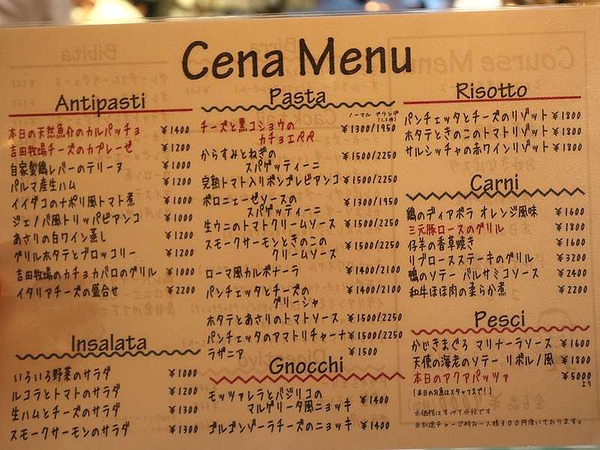 Cena Menu
Antipasti
本日の天然魚介のカルパッチョ ¥1400
吉田牧場チーズのカプレーゼ ¥1200
自家製鶏レバーのテリーヌ ¥1000
パルマ産生ハム ¥1200
イイダコのナポリ風トマト煮 ¥1000
ジェノバ風トリッパビアンコ ¥1000
あさりの白ワイン蒸し ¥1200
グリルホタテとブロッコリー ¥1200
吉田牧場のカチョカバロのグリル ¥1000
イタリアチーズの盛合せ ¥2200
Insalata
いろいろ野菜のサラダ ¥1000
ルコラとトマトのサラダ ¥1200
生ハムとチーズのサラダ ¥1300
スモークサーモンのサラダ ¥1300
Pasta
チーズと黒コショウの
カチョエペペ ¥1300/1950
からすみとねぎの
スパゲッティーニ ¥1500/2250
完熟トマト入りボンゴレビアンコ ¥1500/2250
ボロニェーゼソースの
スパゲッティーニ ¥1300/1950
生ウニのトマトクリームソース ¥1500/2250
スモークサーモンときのこの
クリームソース ¥1500/2250
ローマ風カルボナーラ ¥1400/2100
パンチェッタとチーズの
グリーシャ ¥1400/2100
ホタテとあさりのトマトソース ¥1500/2250
パンチェッタのアマトリチャーナ ¥1500/2250
ラザニア ¥1500
Gnocchi
モッツァレラとバジリコの
マルゲリータ風ニョッキ ¥1400
ゴルゴンゾーラチーズのニョッキ ¥1400
Risotto
パンチェッタとチーズのリゾット ¥1800
ホタテときのこのトマトリゾット ¥1800
サルシッチャの赤ワインリゾット ¥1800
Carni
鶏のディアボラ オレンジ風味 ¥1600
三元豚ロースのグリル ¥1800
仔羊の香草焼き ¥1600
リブロースステーキのグリル ¥3200
鴨のソテー バルサミコソース ¥2400
和牛ほほ肉の柔らか煮 ¥2200
Pesci
かじきまぐろ マリナーラソース ¥1600
天使の海老のソテー リボルノ風 ¥1800
本日のアクアパッツァ ¥5000より
(本日のお魚はスタッフまで!)
※価格はすべて外税です
※別途チャージ料お一人様300円頂いております。